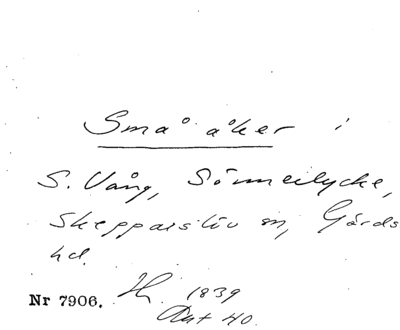 Små åker i
S. Vång, Sönnerlycke,
Skepparslöv sn, Gärds
hd.
Nr 7906. H. 1839
Akt 40.